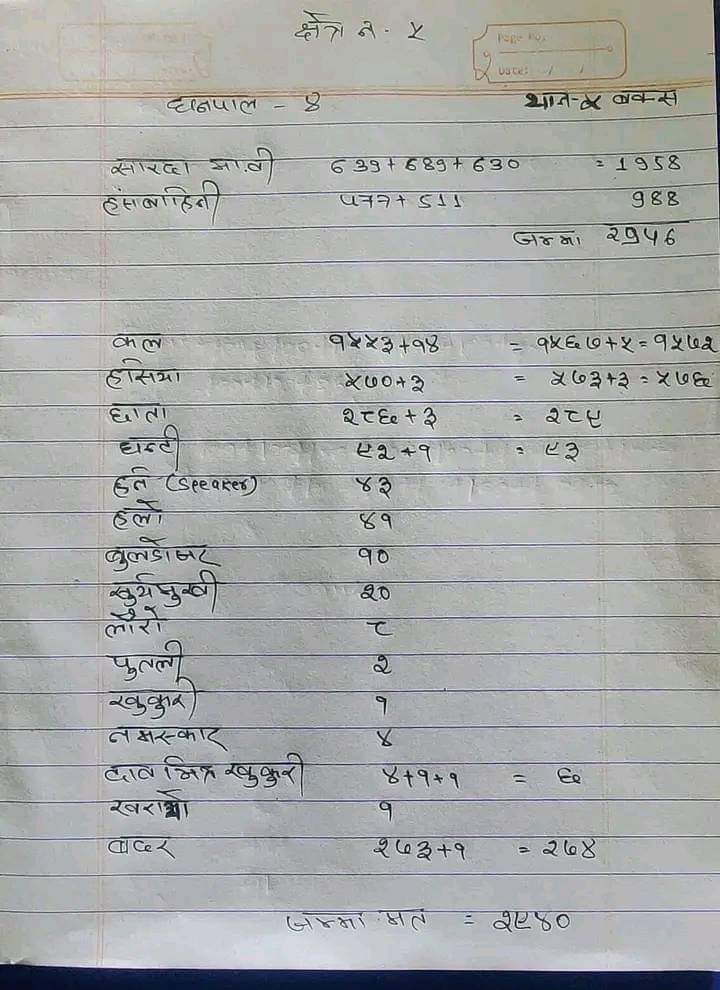 क्षेत्र नं - ५
Page No.
Date: / /
धनपाल - ४ थान-५ बक्स
सारदा मा.वी 639+689+630 = 1958
हंसबाहिनी ५७७+511 988
जम्मा २९५६
कल १५५३+१४ = १५६७+५ = १५७२
हसिया ५७०+३ = ५७३+३ = ५७६
छाता २८६+३ = २८९
घन्टी ९२+१ = ९३
हर्न (Speaker) ४३
हलो ४१
बुलडोजर १०
सुर्यमुखी २०
लौरो ८
पुतली २
खुकुरी १
नमस्कार ४
दाव भित्र खुकुरी ४+१+१ = ६
खरायो १
बदर २७३+१ = २७४
जम्मा मत = २९४०